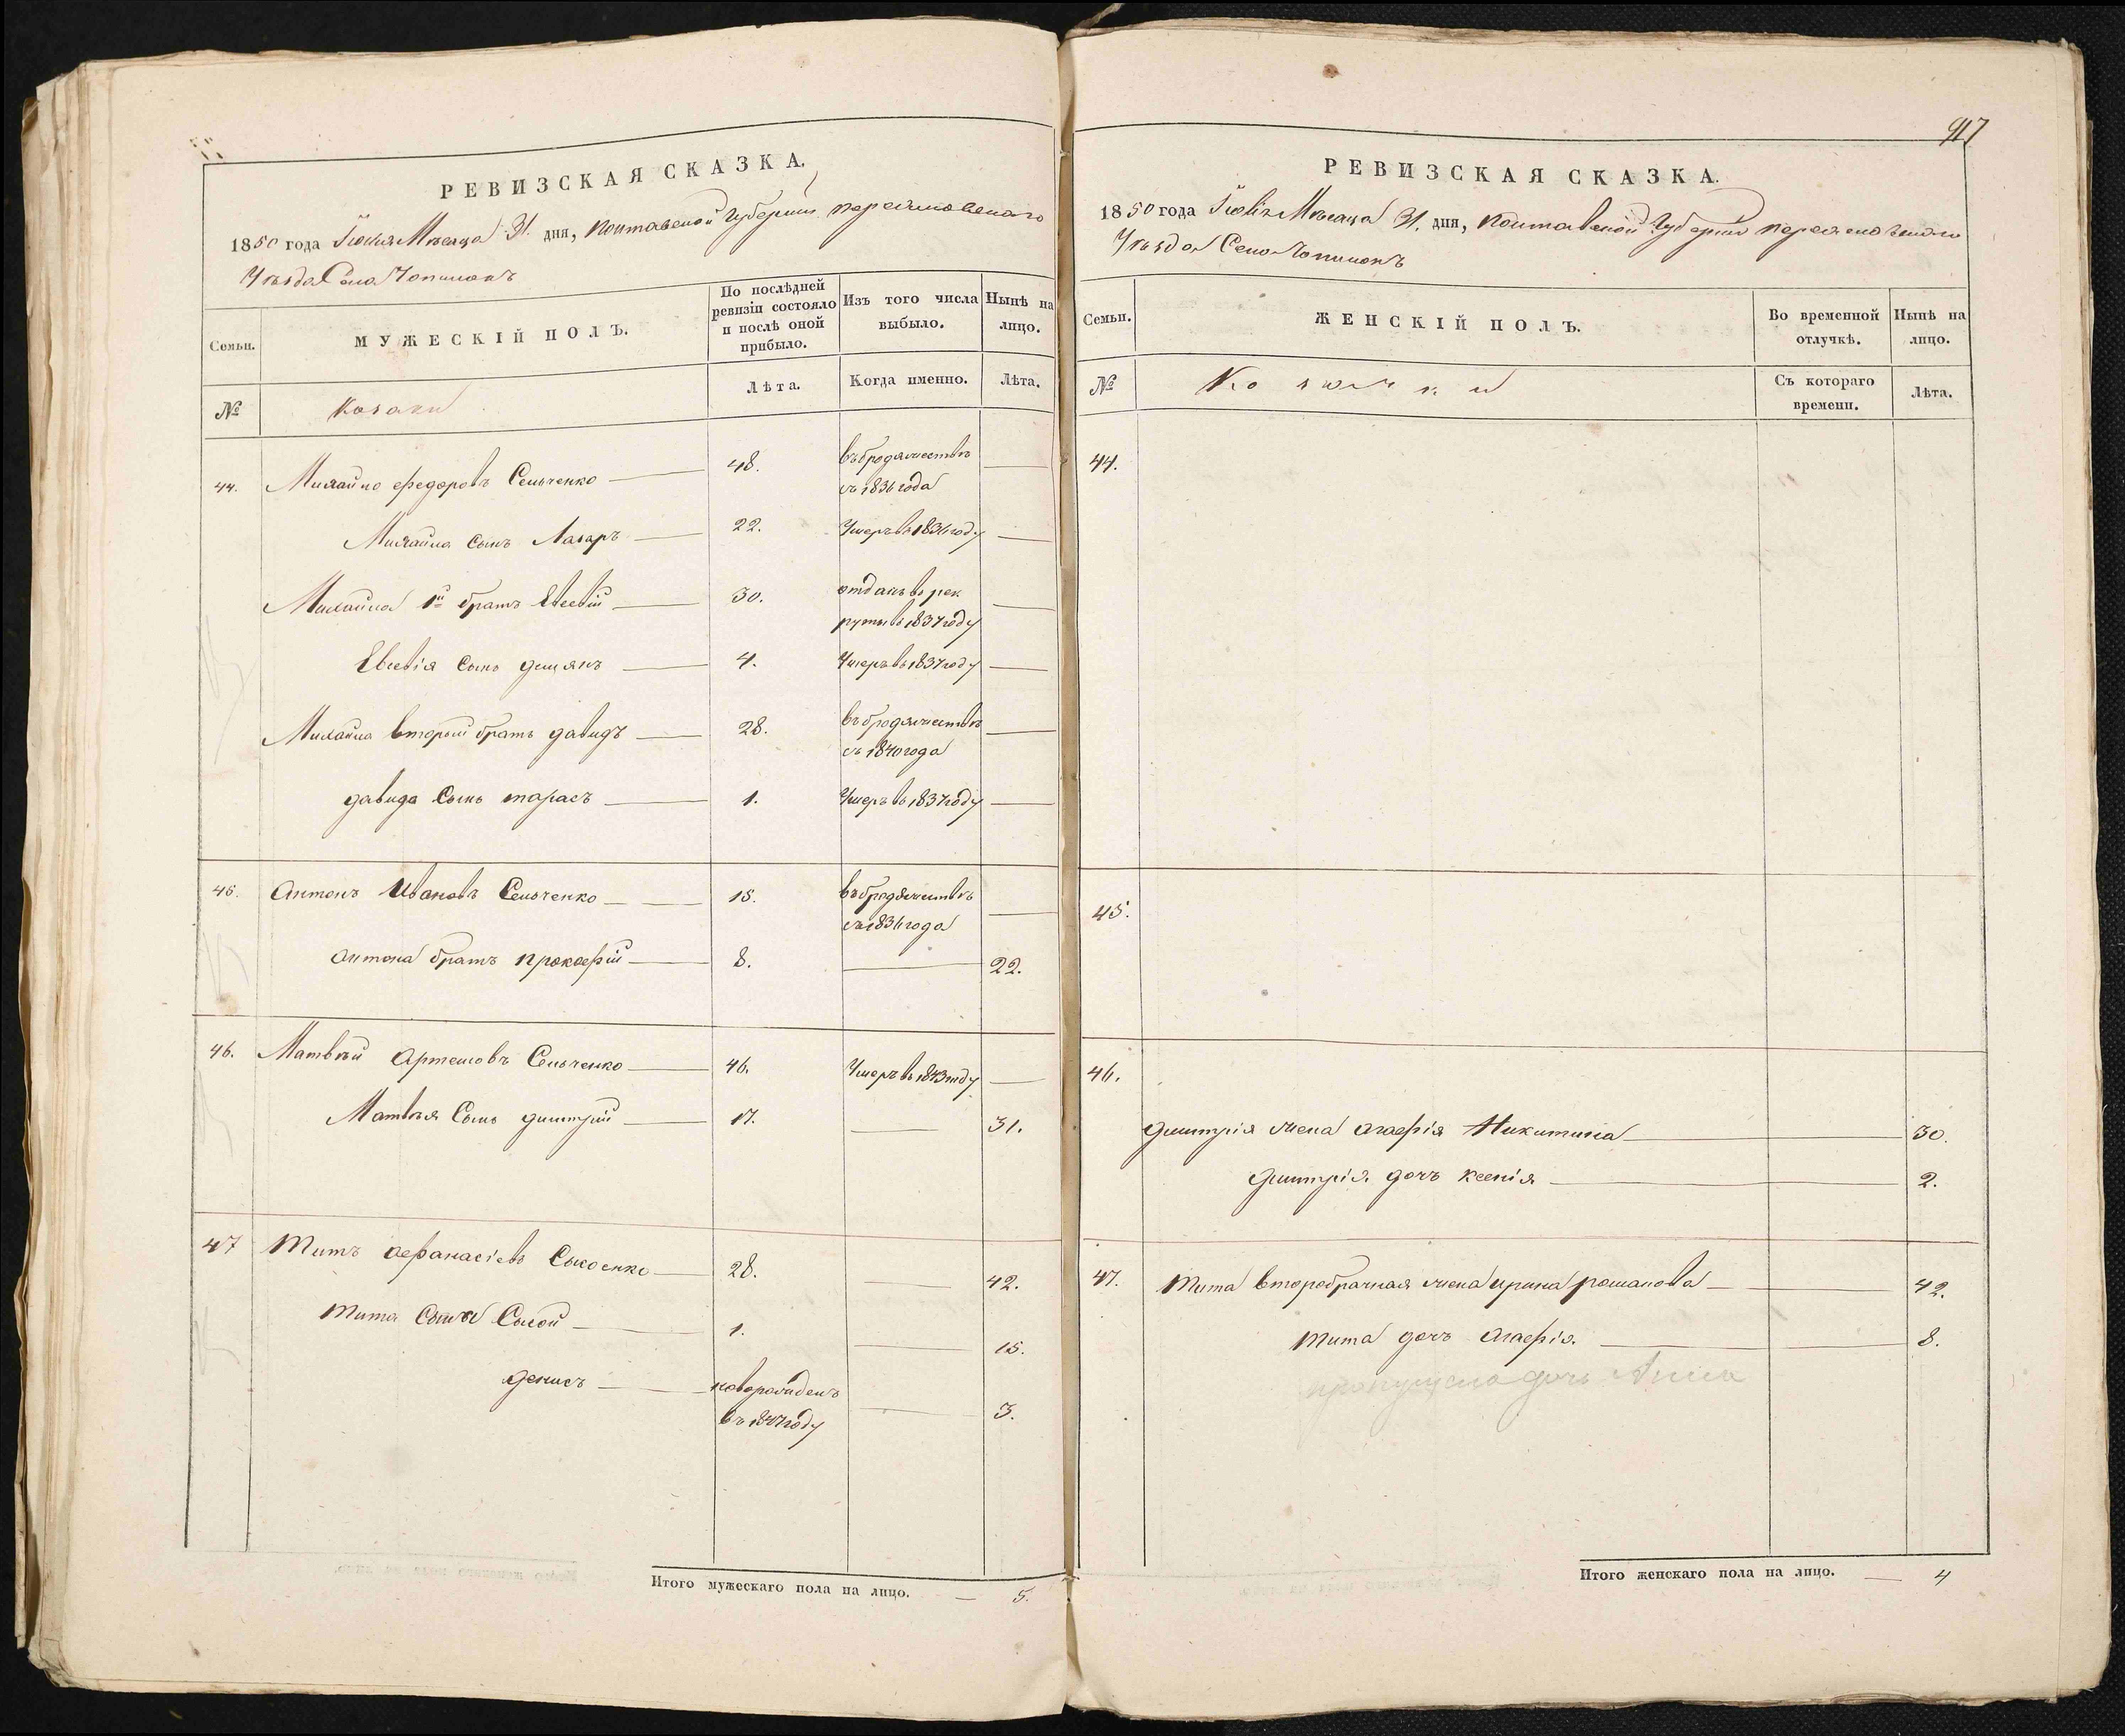 РЕВИЗСКАЯ СКАЗКА.
1850 года Іюля Мѣсяца 31. дня, Полтавской Губерніи Переяславского
Уѣзда Села
Семьи.
МУЖЕСКІЙ ПОЛЪ.
По послѣдней
ревизіи состояло
и послѣ оной
прибыло.
Изъ того числа
выбыло.
Нынѣ на
лицо.
№
Козаки
Лѣта.
Когда именно.
Лѣта.
44. Михайло Федоровъ 48. въ бродяжествѣ
съ 1836 года
Михайла Сынъ Лазаръ 22. Умеръ въ году
Михайла 1й братъ Евсевій 30. отданъ въ рек
руты въ 1837 году
Евсевія Сынъ 4. Умеръ въ 1837 году
Михайла вторый братъ давидъ 28. въ бродяжествѣ
съ 1840 года
давида Сынъ тарасъ 1. Умеръ въ 1837 году
45. Антонъ Ивановъ 15. въ бродяжествѣ
съ 1836 года
Антона братъ Прокофій 8. 22.
46. Матвѣй Артемовъ 46. Умеръ въ 1843 году
Матвѣя Сынъ димитрій 17. 31.
47 Титъ Афанасіевъ 28. 42.
Тита 1. 15.
денисъ новорожденъ
въ 1847 году 3.
Итого мужескаго пола на лицо. — 5.
917
РЕВИЗСКАЯ СКАЗКА.
1850 года Іюля Мѣсяца 31. дня, Полтавской Губерніи Переяславского
Уѣзда Село
Семьи.
ЖЕНСКІЙ ПОЛЪ.
Во временной
отлучкѣ.
Нынѣ на
лицо.
№
Съ котораго
времени.
Лѣта.
44.
45.
46.
димитрія жена Агафія Никитина 30.
димитрія дочь ксенія 2.
47. Тита второбрачная жена ирина романова 42.
Тита дочь Агафія 8.
пропущена дочь Анна
Итого женскаго пола на лицо. — 4